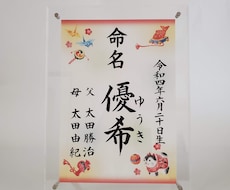 令和四年六月二十日生
命名
優希
ゆうき
父 太田勝治
母 太田由紀